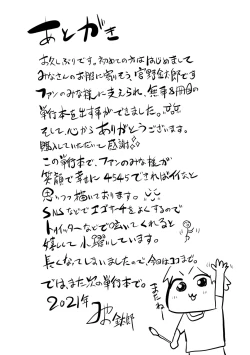 あとがき
お久しぶりです。初めての方ははじめまして
みなさんのお股に寄りそう、宮野金太郎です
ファンのみな様に支えられ、無事8冊目の
単行本を出す事ができました。
そして、心からありがとうございます。
購入していただいて感謝
この単行本で、ファンのみな様が
笑顔で幸せに4545できればイイなと
思いつつ描いております。
SNSなどでエゴサーチをよくするので
トゥイッターなどで呟いてくれると
嬉しくて小躍りしています。
長くなってしまいましたので、今回はココまで。
では、また次の単行本で。
2021年
またね〜